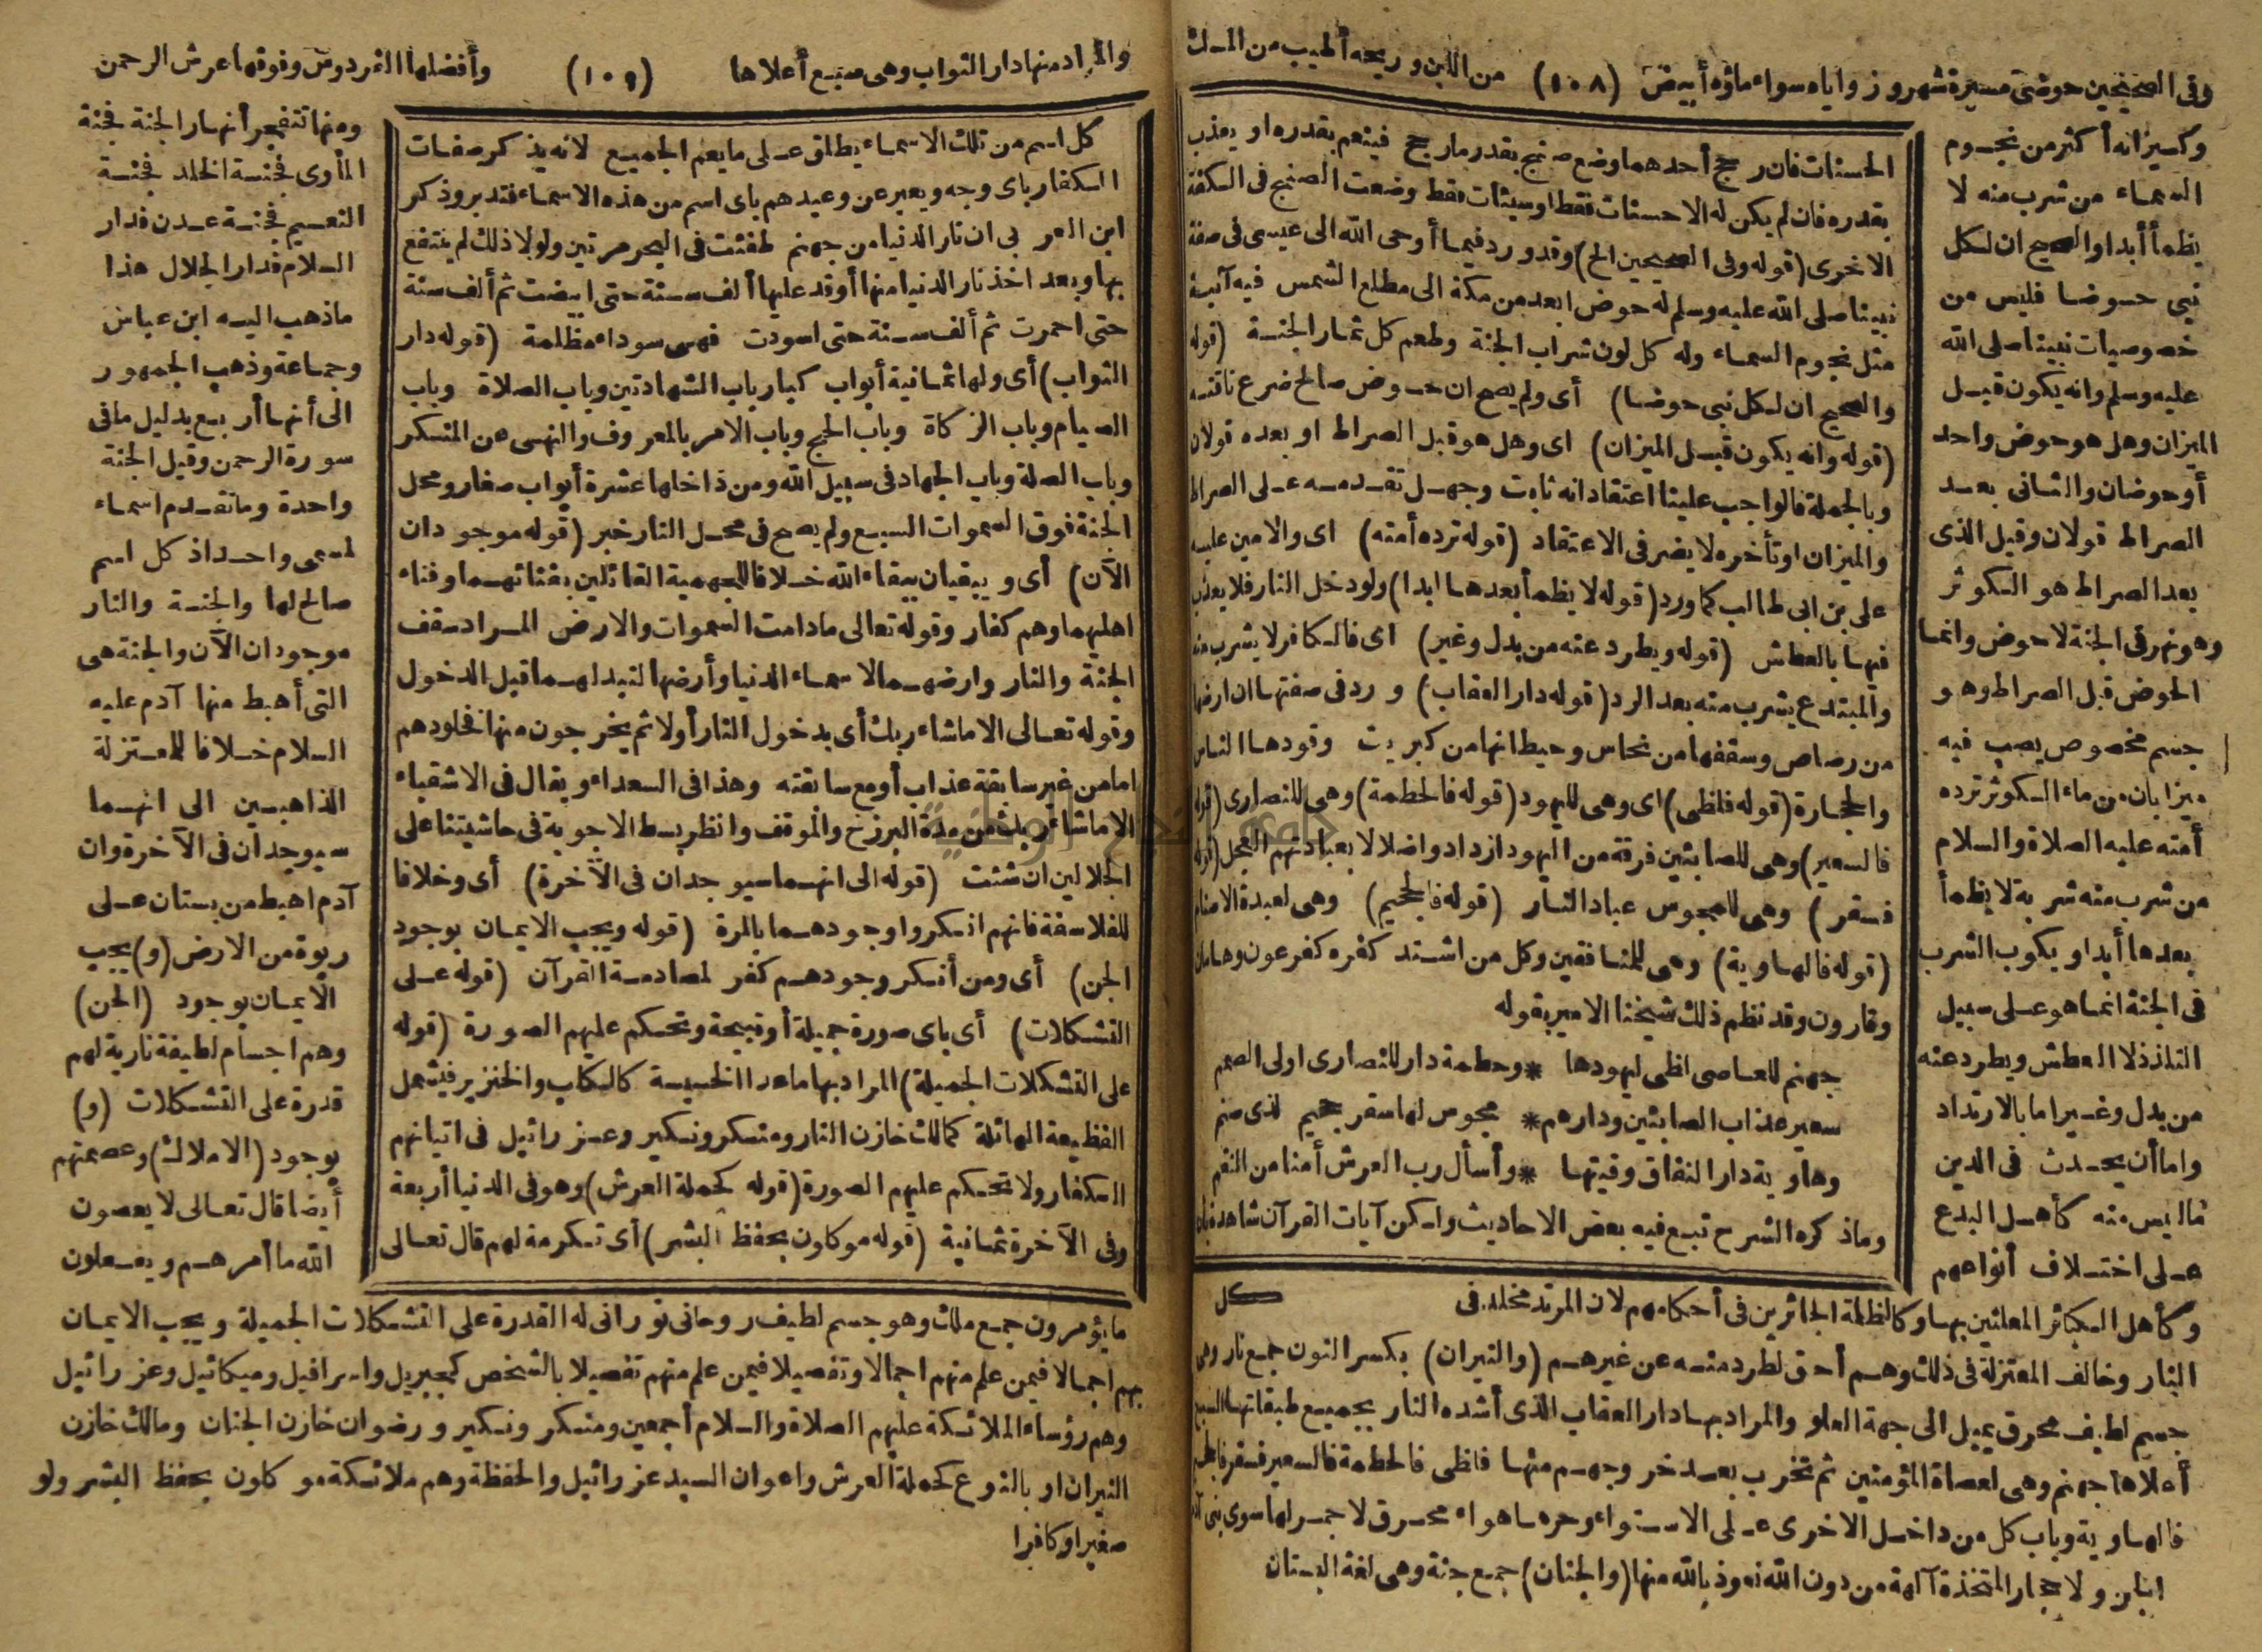 وفى الصحيحين حوضى مسيرة شهر وزواياه سواء ماؤه أبيض (١٠٨) من اللبن وريحه أطيب من المسك
وكيزانه أكثر من نجوم
السماء من شرب منه لا
يظمأ أبدا والصحيح ان لكل
نبى حوضا فليس من
خصوصيات نبينا صلى الله
عليه وسلم وانه يكون قبل
الميزان وهل هو حوض واحد
أو حوضان والثانى بعد
الصراط قولان وقيل الذى
بعد الصراط هو الكوثر
وهو نهر فى الجنة لا حوض وانما
الحوض قبل الصراط وهو
جسم مخصوص يصب فيه
ميزابان من ماء الكوثر ترده
أمته عليه الصلاة والسلام
من شرب منه شربة لا يظمأ
بعدها أبدا ويكون الشرب
فى الجنة انما هو على سبيل
التلذذ لا العطش ويطرد عنه
من بدل وغير اما بالارتداد
واما أن يحدث فى الدين
ما ليس منه كأهل البدع
على اختلاف أنواعهم
وكأهل الكبائر المعلنين بها وكالظلمة الجائرين فى أحكامهم لان المرتد مخلد فى
النار وخالف المعتزلة فى ذلك وهم أحق لطرد منه عن غيرهم (والنيران) بكسر النون جمع نار وهى
جسم لطيف محرق يميل الى جهة العلو والمراد بها دار العقاب الذى أشده النار بجميع طبقاتها السبع
أعلاها جهنم وهى لعصاة المؤمنين ثم تخرب بعد خروجهم منها فلظى فالحطمة فالسعير فسقر فالجحيم
فالهاوية وباب كل من داخل الاخرى على الاستواء وحرها هواء محرق لا جمر لها سوى بنى آدم
والاحجار المتخذة آلهة من دون الله نعوذ بالله منها (والجنان) جمع جنة وهى لغة البستان
الحسنات فان رجح أحدهما وضع صنج بقدر ما رجح فينعم بقدره او يعذب
بقدره فان لم يكن له الا حسنات فقط او سيئات فقط وضعت الصنج فى الكفة
الاخرى (قوله وفى الصحيحين الخ) وقد ورد فيما أوحى الله الى عيسى فى صفة
نبينا صلى الله عليه وسلم له حوض ابعد من مكة الى مطلع الشمس فيه آنية
مثل نجوم السماء وله كل لون شراب الجنة وطعم كل ثمار الجنة (قوله
والصحيح ان لكل نبى حوضا) أى ولم يصح ان حوض صالح ضرع ناقته
(قوله وانه يكون قبل الميزان) اى وهل هو قبل الصراط او بعده قولان
وبالجملة فالواجب علينا اعتقاد انه ثابت وجهل تقدمه على الصراط
والميزان او تأخره لا يضر فى الاعتقاد (قوله ترده أمته) اى والامين عليه
على بن ابى طالب كما ورد (قوله لا يظمأ بعدها ابدا) ولو دخل النار فلا يعذب
فيها بالعطش (قوله ويطرد عنه من بدل وغير) اى فالكافر لا يشرب منه
والمبتدع يشرب منه بعد الرد (قوله دار العقاب) ورد فى صفتها ان ارضها
من رصاص وسقفها من نحاس وحيطانها من كبريت وقودها الناس
والحجارة (قوله فلظى) اى وهى لليهود (قوله فالحطمة) وهى للنصارى (قوله
فالسعير) وهى للصابئين فرقة من اليهود ازدادوا ضلالا بعبادتهم العجل (قوله
فسقر) وهى للمجوس عباد النار (قوله فالجحيم) وهى لعبدة الاصنام
(قوله فالهاوية) وهى للمنافقين وكل من اشتد كفره كفرعون وهامان
وقارون وقد نظم ذلك شيخنا الامير بقوله
جهنم للعاصى لظى ليهودها * وحطمة دار للنصارى اولى الصمم
سعير عذاب الصابئين ودارهم * مجوس لها سقر جحيم لذى صنم
وهاوية دار النفاق وقيتها * وأسأل رب العرش أمنا من النقم
وما ذكره الشرح تبع فيه بعض الاحاديث ولكن آيات القرآن شاهدة بان
كل
والمراد منها دار الثواب وهى سبع أعلاها (١٠٩) وأفضلها الفردوس وفوقها عرش الرحمن
كل اسم من تلك الاسماء يطلق على ما يعم الجميع لانه يذكر صفات
الكفار باى وجه ويعبر عن وعيدهم باى اسم من هذه الاسماء فتدبر وذكر
ابن العربى ان نار الدنيا من جهنم طفئت فى البحر مرتين ولولا ذلك لم ينتفع
بها وبعد اخذ نار الدنيا منها أوقد عليها ألف سنة حتى ابيضت ثم ألف سنة
حتى احمرت ثم ألف سنة حتى اسودت فهى سوداء مظلمة (قوله دار
الثواب) أى ولها ثمانية أبواب كبار باب الشهادتين وباب الصلاة وباب
الصيام وباب الزكاة وباب الحج وباب الامر بالمعروف والنهى عن المنكر
وباب الصلة وباب الجهاد فى سبيل الله ومن داخلها عشرة أبواب صغار ومحل
الجنة فوق السموات السبع ولم يصح فى محل النار خبر (قوله موجودان
الآن) أى ويبقيان ببقاء الله خلافا للجهمية القائلين بفنائهما وفناء
اهليهما وهم كفار وقوله تعالى ما دامت السموات والارض المراد سقف
الجنة والنار وارضهما لا سماء الدنيا وأرضها لتبدلهما قبل الدخول
وقوله تعالى الا ما شاء ربك أى بدخول النار أولا ثم يخرجون منها فخلودهم
اما من غير سابقة عذاب أو مع سابقته وهذا فى السعداء ويقال فى الاشقياء
الا ما شاء ربك من مدة البرزخ والموقف وانظر بسط الاجوبة فى حاشيتنا على
الجلالين ان شئت (قوله الى انهما سيوجدان فى الآخرة) أى وخلافا
للفلاسفة فانهم انكروا وجودهما بالمرة (قوله ويجب الايمان بوجود
الجن) أى ومن أنكر وجودهم كفر لمصادمة القرآن (قوله على
التشكلات) أى باى صورة جميلة أو قبيحة وتحكم عليهم الصورة (قوله
على التشكلات الجميلة) المراد بها ما عدا الخسيسة كالكلب والخنزير فيشمل
الفظيعة الهائلة كمالك خازن النار ومنكر ونكير وعزرائيل فى اتيانهم
الكفار ولا تحكم عليهم الصورة (قوله كحملة العرش) وهو فى الدنيا أربعة
وفى الآخرة ثمانية (قوله موكلون بحفظ البشر) أى تكرمة لهم قال تعالى
ومنها تتفجر أنهار الجنة فجنة
المأوى فجنة الخلد فجنة
النعيم فجنة عدن فدار
السلام فدار الجلال هذا
ما ذهب اليه ابن عباس
وجماعة وذهب الجمهور
الى أنها أربع بدليل ما فى
سورة الرحمن وقيل الجنة
واحدة وما تقدم اسماء
لمسمى واحد اذ كل اسم
صالح لها والجنة والنار
موجودان الآن والجنة هى
التى أهبط منها آدم عليه
السلام خلافا للمعتزلة
الذاهبين الى انهما
سيوجدان فى الآخرة وان
آدم اهبط من بستان على
ربوة من الارض (و) يجب
الايمان بوجود (الجن)
وهم اجسام لطيفة نارية لهم
قدرة على التشكلات (و)
بوجود (الاملاك) وعصمتهم
أيضا قال تعالى لا يعصون
الله ما أمرهم ويفعلون
ما يؤمرون جمع ملك وهو جسم لطيف روحانى نورانى له القدرة على التشكلات الجميلة ويجب الايمان
بهم اجمالا فيمن علم منهم اجمالا وتفصيلا فيمن علم منهم تفصيلا بالشخص كجبريل واسرافيل وميكائيل وعزرائيل
وهم رؤساء الملائكة عليهم الصلاة والسلام أجمعين ومنكر ونكير ورضوان خازن الجنان ومالك خازن
النيران او بالنوع كحملة العرش واعوان السيد عزرائيل والحفظة وهم ملائكة موكلون بحفظ البشر ولو
صغيرا او كافرا